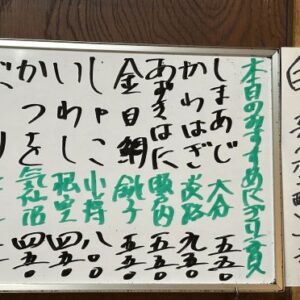 本日のおすすめにぎり一貫
しまあじ 大分 五五〇
かわはぎ 淡路 九五〇
あずきはた 瀬戸内 五五〇
金目鯛 銚子 五五〇
しゃこ 小樽 八〇〇
いわし 根室 四五〇
かつを 気仙沼 四五〇